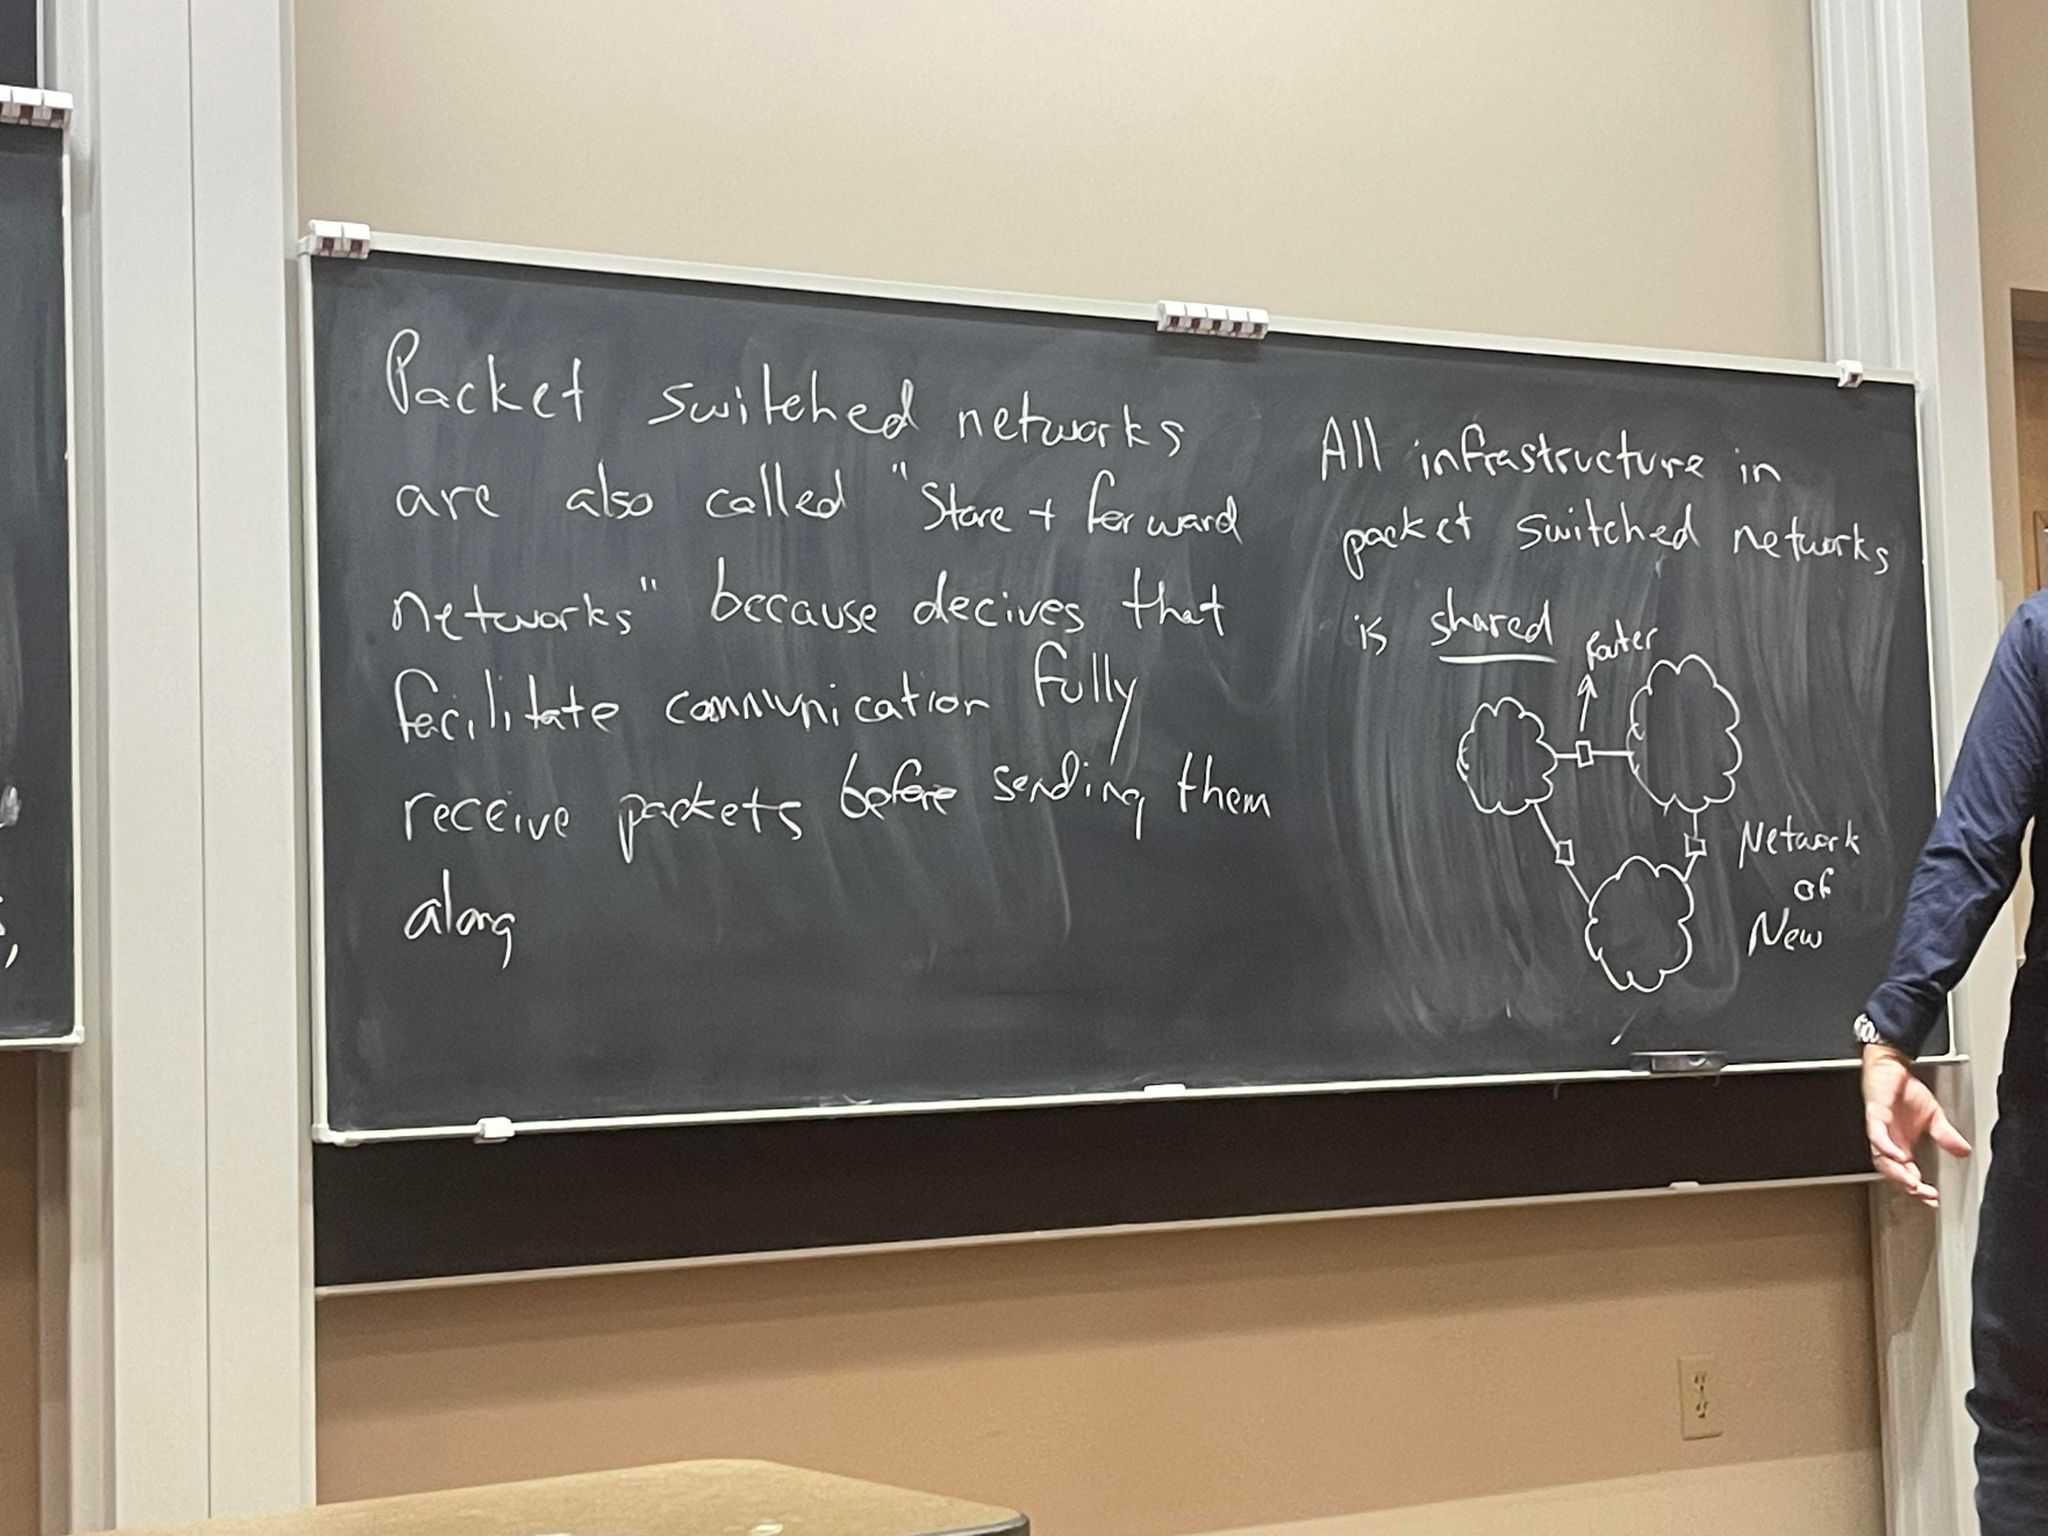 Packet switched networks
are also called "Store + forward
networks" because decives that
facilitate communication fully
receive packets before sending them
along
All infrastructure in
packet switched networks
is shared
Router
Network
of
New